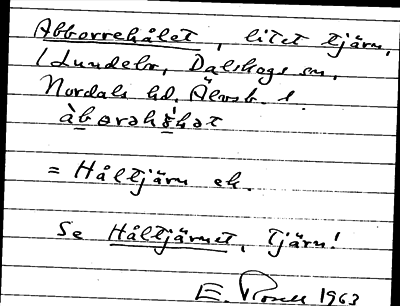 Abborrehålet, litet tjärn,
Dalskogs sn,
Nordals hd, Älvsb. l.
= Håltjärn ek.
Se Håltjärnet, tjärn!
E. 1963